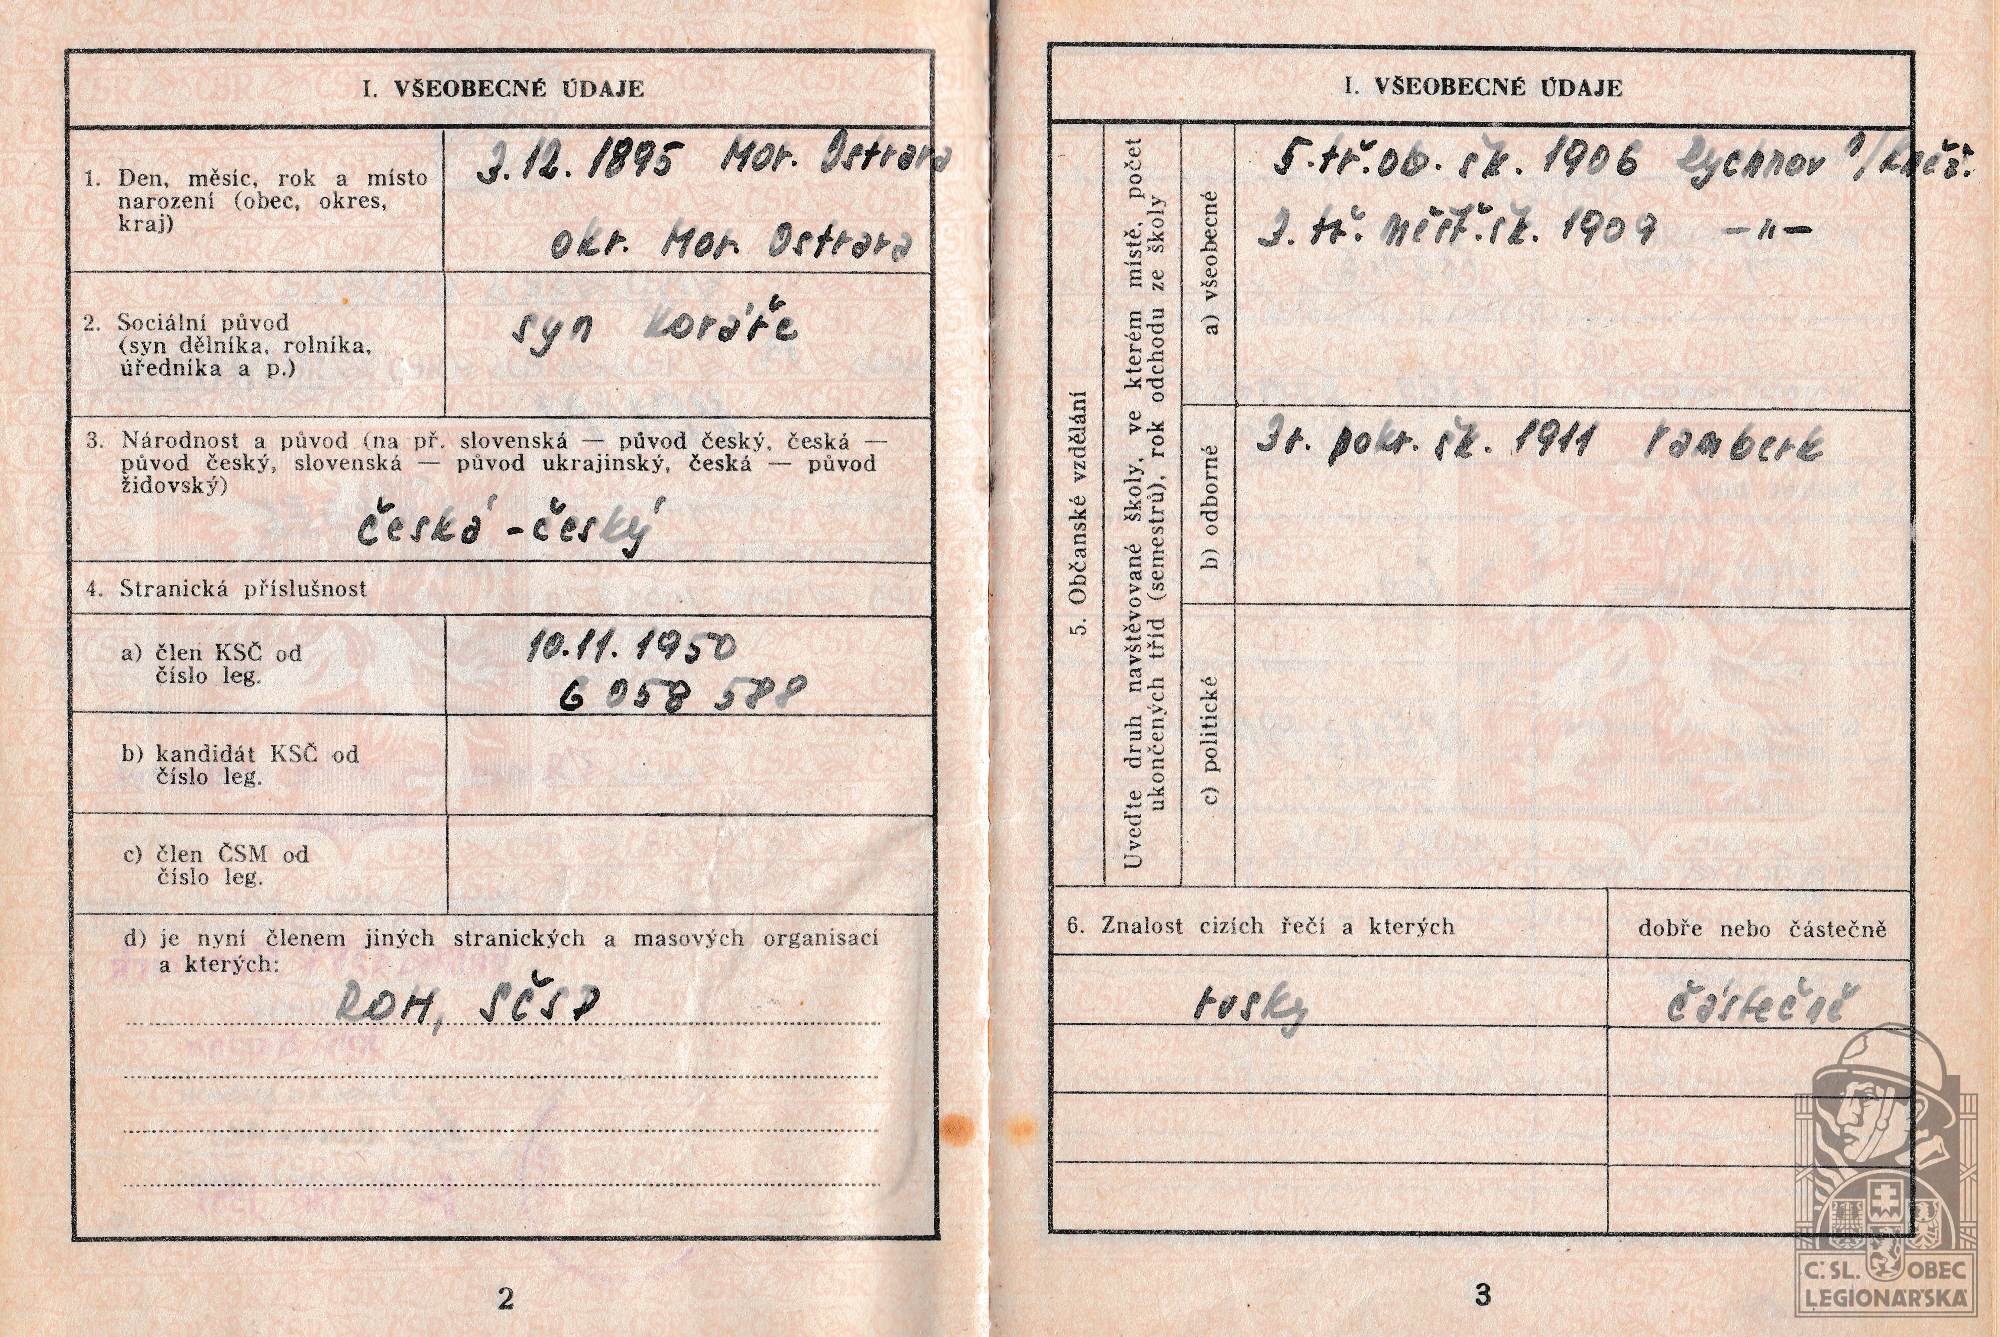 I. VŠEOBECNÉ ÚDAJE
1. Den, měsíc, rok a místo
narození (obec, okres,
kraj)
3.12. 1895 Mor. Ostrava
okr. Mor. Ostrava
2. Sociální původ
(syn dělníka, rolníka,
úředníka a p.)
syn kováře
3. Národnost a původ (na př. slovenská — původ český, česká —
původ český, slovenská — původ ukrajinský, česká — původ
židovský)
česká - český
4. Stranická příslušnost
a) člen KSČ od
číslo leg.
10.11. 1950
6 058 588
b) kandidát KSČ od
číslo leg.
c) člen ČSM od
číslo leg.
d) je nyní členem jiných stranických a masových organisací
a kterých:
ROH, SČSP
2
I. VŠEOBECNÉ ÚDAJE
5. Občanské vzdělání
Uveďte druh navštěvované školy, ve kterém místě, počet
ukončených tříd (semestrů), rok odchodu ze školy
a) všeobecné
5. tř. ob. šk. 1906 Rychnov n/Kněž.
3. tř. měšť. šk. 1909 -"-
b) odborné
3r. pokr. šk. 1911 Žamberk
c) politické
6. Znalost cizích řečí a kterých
dobře nebo částečně
rusky částečně
3
Č. SL. OBEC
LEGIONÁŘSKÁ